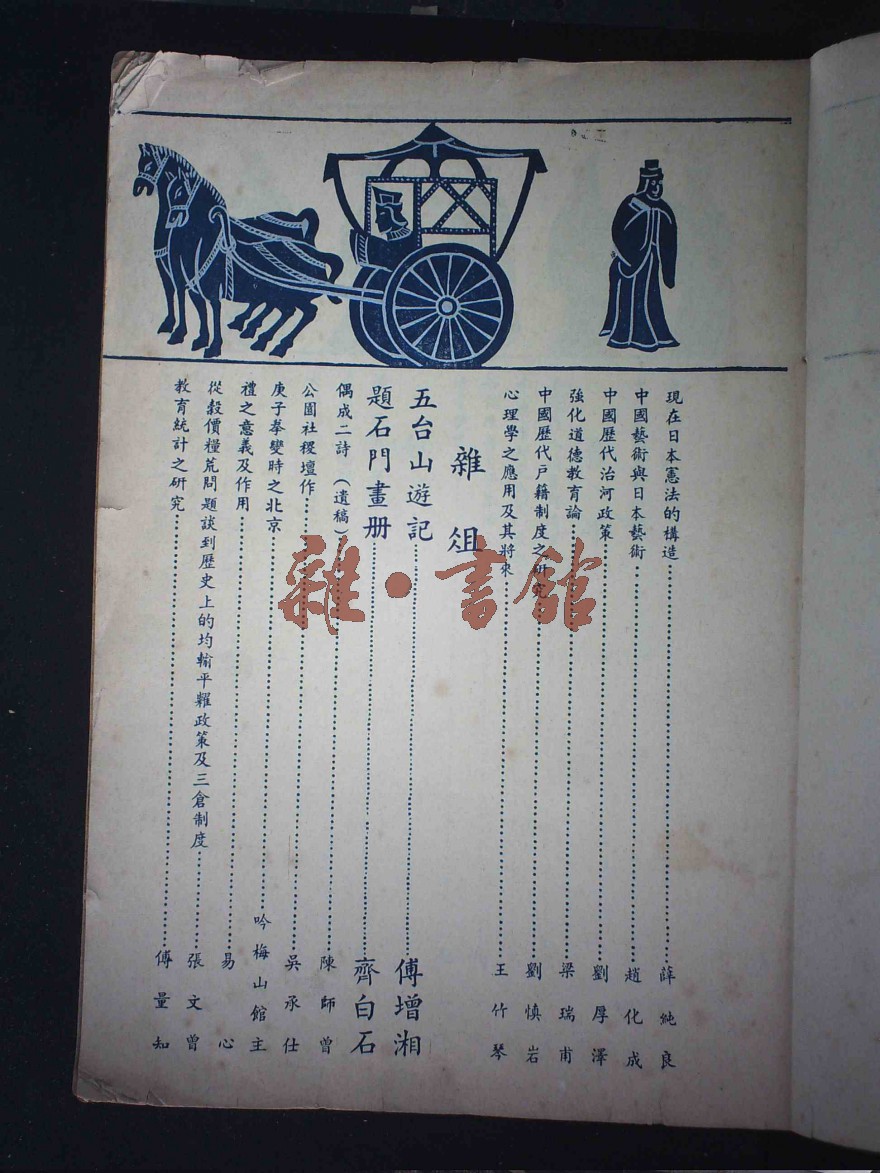 現在日本憲法的構造 薛純良
中國藝術與日本藝術 趙化成
中國歷代治河政策 劉厚澤
強化道德教育論 梁瑞甫
中國歷代戶籍制度之研究 劉慎岩
心理學之應用及其將來 王竹琴
雜俎
五台山遊記 傅增湘
題石門畫册 齊白石
偶成二詩（遺稿） 陳師曾
公園社稷壇作 吳承仕
庚子拳變時之北京 吟梅山館主
禮之意義及作用 易心
從穀價糧荒問題談到歷史上的均輸平糶政策及三倉制度 張文曾
教育統計之研究 傅量知
雜·書館